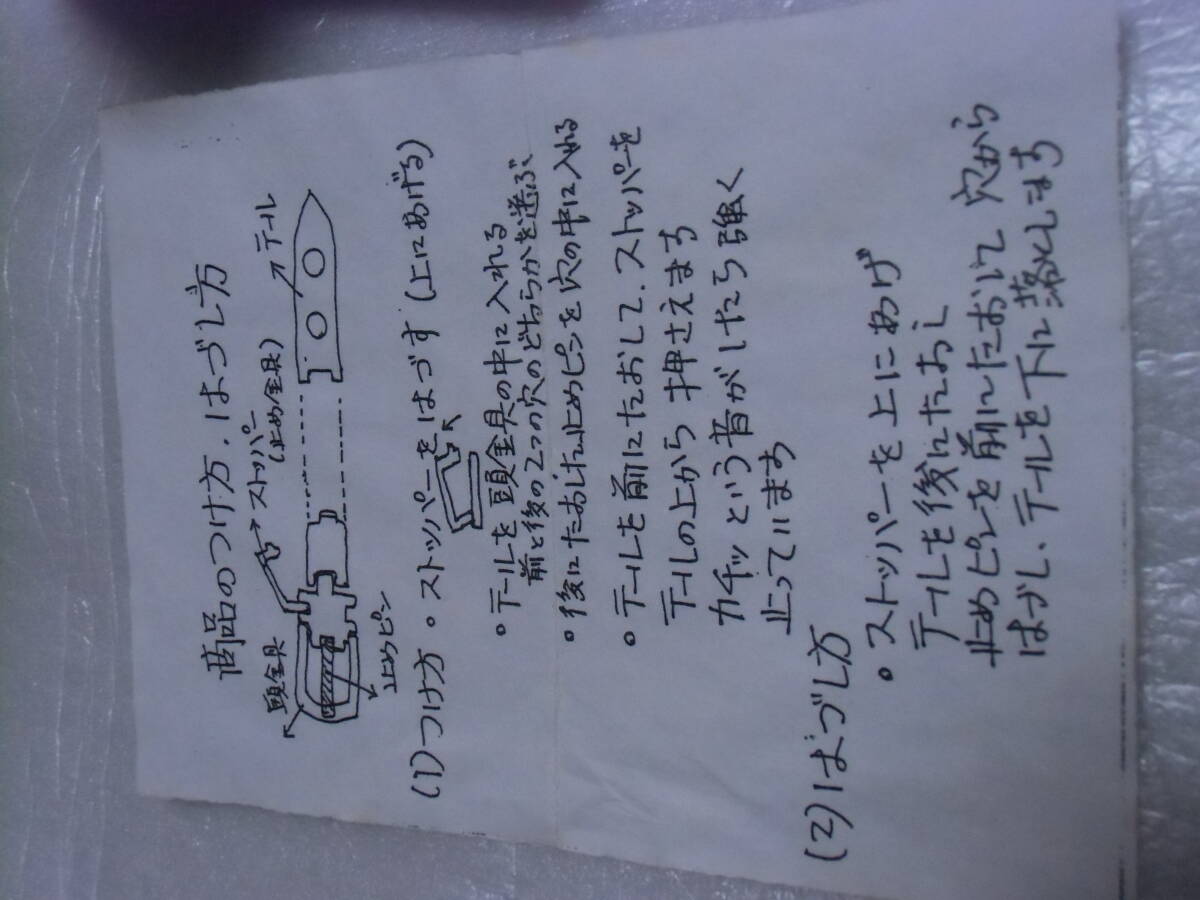 商品のつけ方.はづし方
頭金具
ストッパー
(止め金具)
テール
止めピン
(1)つけ方 ◦ストッパーをはづす(上にあげる)
◦テールを頭金具の中に入れる
前と後の2つの穴のどちらかを選ぶ
◦後にたおした止めピンを穴の中に入れる
◦テールを前にたおして.ストッパーを
テールの上から押さえます
カチッという音がしたら強く
止っています
(2)はづし方
◦ストッパーを上にあげ
テールを後にたおし
止めピンを前にたおして穴から
はづし.テールを下に落とします